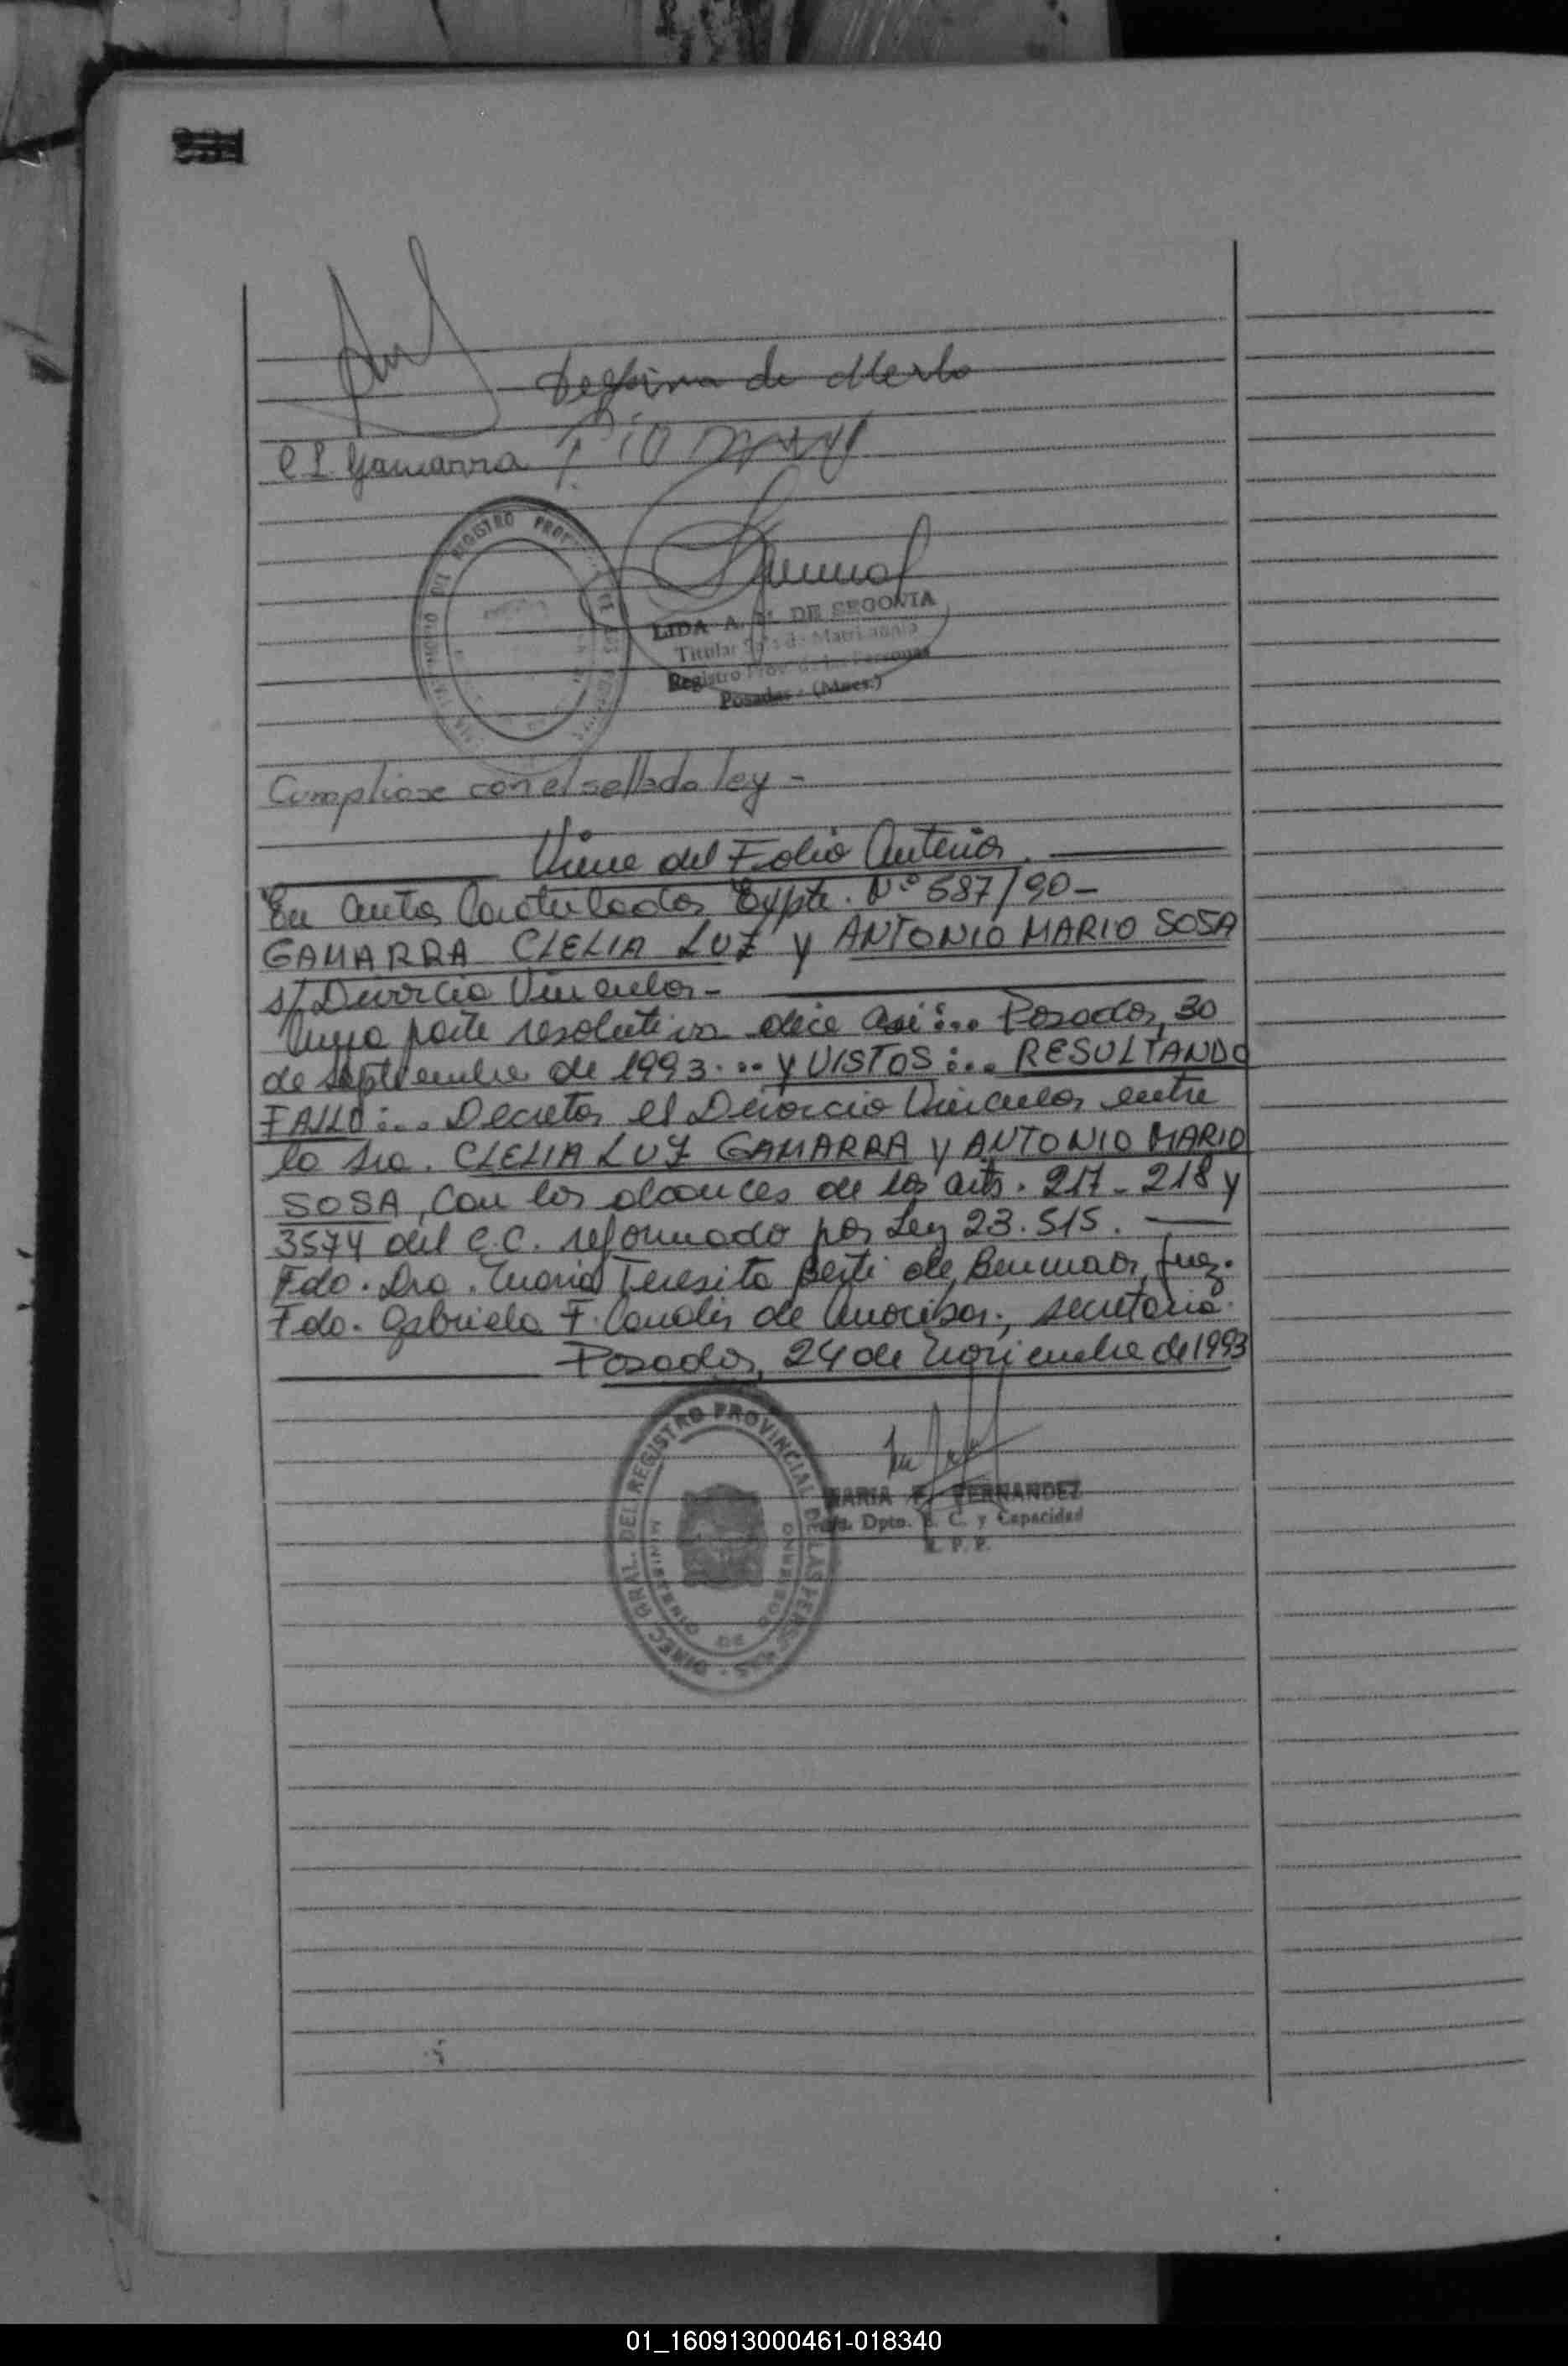 de Merlo
C L Gamarra
REGISTRO PROV
LIDA A. DE SEGOVIA
Titular
Registro Prov. de las Personas
Posadas - (Mnes.)
Cumpliose con el sellado ley -
Viene del Folio Anterior.
En autos Caratulados Expte. Nº 587/90 -
GAMARRA CLELIA LUZ y ANTONIO MARIO SOSA
s/ Divorcio Vincular -
Cuya parte resolutiva dice así:... Posadas, 30
de septiembre de 1993... y VISTOS:... RESULTANDO
FALLO:... Decretar el Divorcio Vincular entre
la Sra. CLELIA LUZ GAMARRA y ANTONIO MARIO
SOSA, Con los alcances de los arts. 217 - 218 y
3574 del C.C. reformado por Ley 23.515.
Fdo. Dra. Maria Teresita de Juez.
Fdo. Gabriela F. Canalis de secretaria.
Posadas, 24 de Noviembre de 1993
DIREC. GRAL. DEL REGISTRO PROVINCIAL DE LAS PERSONAS
MINISTERIO DE GOBIERNO
MARIA F. FERNANDEZ
Dpto. E. C. y Capacidad
R. P. P.
01_160913000461-018340